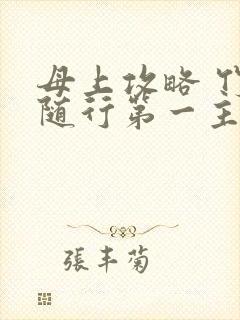 母上攻略
随行第一主
張丰菊